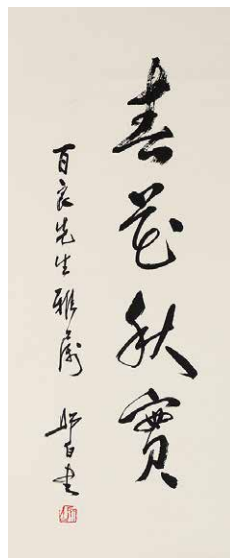 春花秋實
百良先生雅屬
師百書